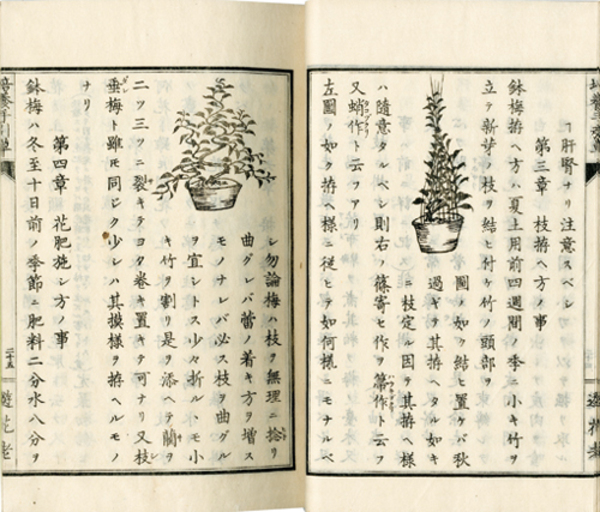 ヿ肝腎ナリ注意スベシ
第三章 枝拵ヘ方ノ事
鉢梅拵ヘ方ハ夏土用前四週間ノ季ニ小キ竹ヲ
立テ新芽ノ枝ヲ結ヒ付ケ竹ノ頭部ヲ
圖ノ如ク結ヒ置ケバ秋
過ギテ其拵ヘタル如キ
ニ枝定ル因テ其拵ヘ様
ハ隨意タルベシ則右ヲ篠寄セ作ヲ箒作ト云フ
又蛸作ト云フアリ
左圖ノ如ク拵ヘ様ニ従ヒテ如何様ニモナルベ
シ勿論梅ハ枝ヲ無理ニ捻リ
曲グレバ蕾ノ着キ方ヲ増ス
モノナレバ必ス枝ヲ曲グル
ヲ宜シトス少々折ルヽモ小
キ竹ヲ割リ是ヲ添ヘテ藺ヲ
二ツ三ツニ裂キテヨタ巻キ置キテ可ナリ又枝
垂梅ト雖モ同ジク少シハ其摸様ヲ拵ヘルモノ
ナリ
第四章 花肥施シ方ノ事
鉢梅ハ冬至十日前ノ季節ニ肥料二分水八分ヲ
二十五